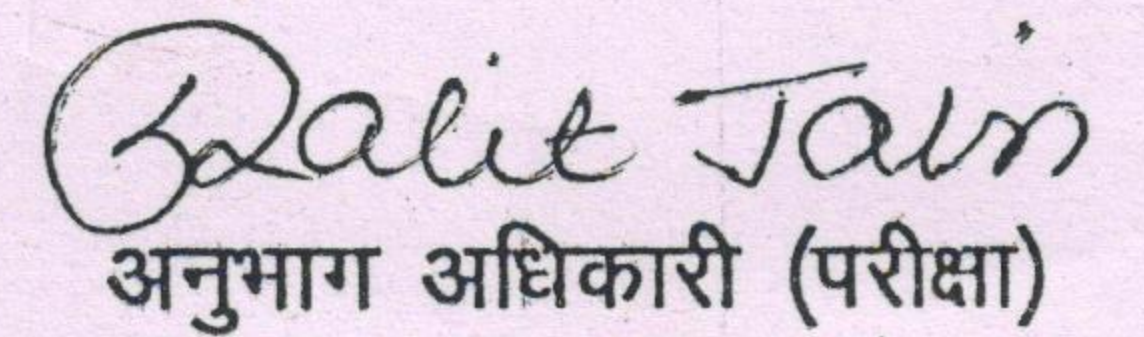 Lalit Jain
अनुभाग अधिकारी (परीक्षा)